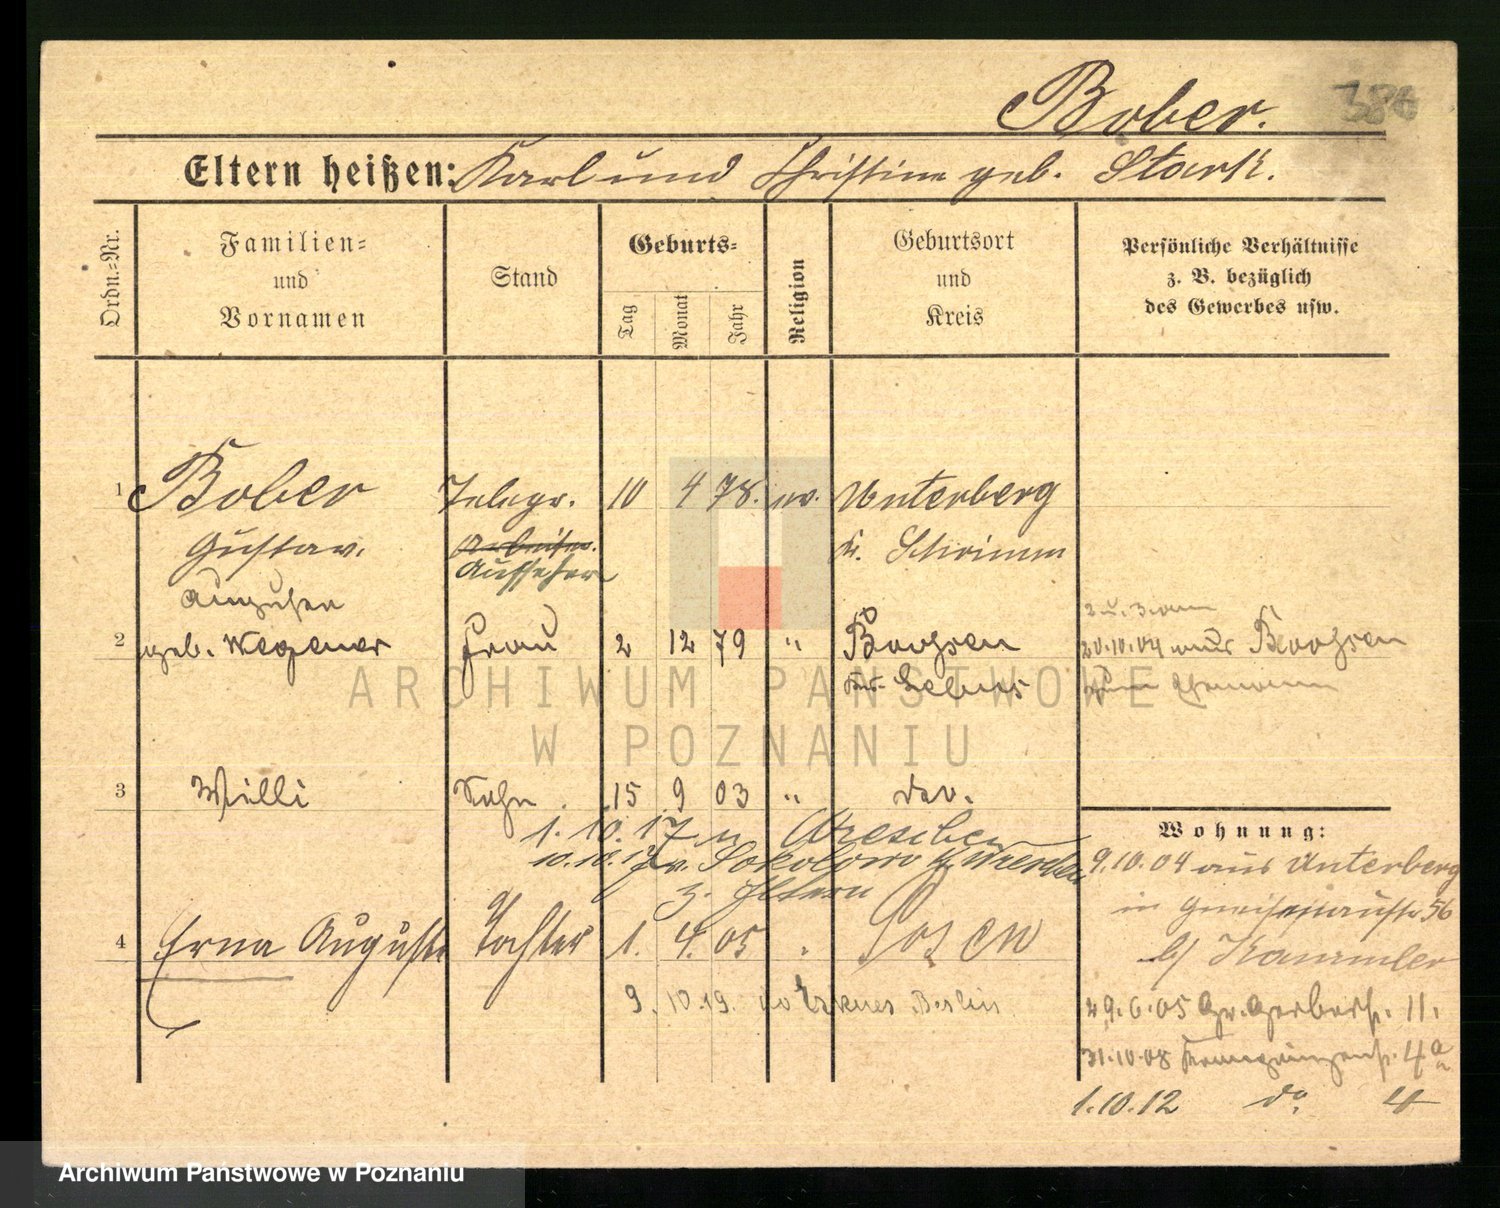 Bober. 386
Eltern heißen: Karl und Christine geb. Stark.
Ordn.=Nr.
Familien=
und
Vornamen
Stand
Geburts=
Tag
Monat
Jahr
Religion
Geburtsort
und
Kreis
Persönliche Verhältnisse
z. B. bezüglich
des Gewerbes usw.
1 Bober Telegr. 10 4 78. ev. Unterberg
Gustav. Arbeiter. Kr. Schrimm
Aufseher
Auguste
2 geb. Wegener Frau 2 12 79 " Boossen
Kr. Lebus
2 u. 3 am
20.10.04 aus Boossen
zum Ehemann
3 Willi Sohn. 15 9 03 " do.
1. 10. 17 n Wreschen
10.10.17 v. Sokolowo Wreschen
z. Eltern
4 Erna Auguste Tochter 1. 4. 05 " Posen
9. 10. 19. Berlin
Wohnung:
9.10.04 aus Unterberg
in Gneisenaustr 56
b/
29.6.05 Gr. Gerberstr. 11.
31.10.08 4a
1.10.12 do 4
ARCHIWUM PAŃSTWOWE
W POZNANIU
Archiwum Państwowe w Poznaniu